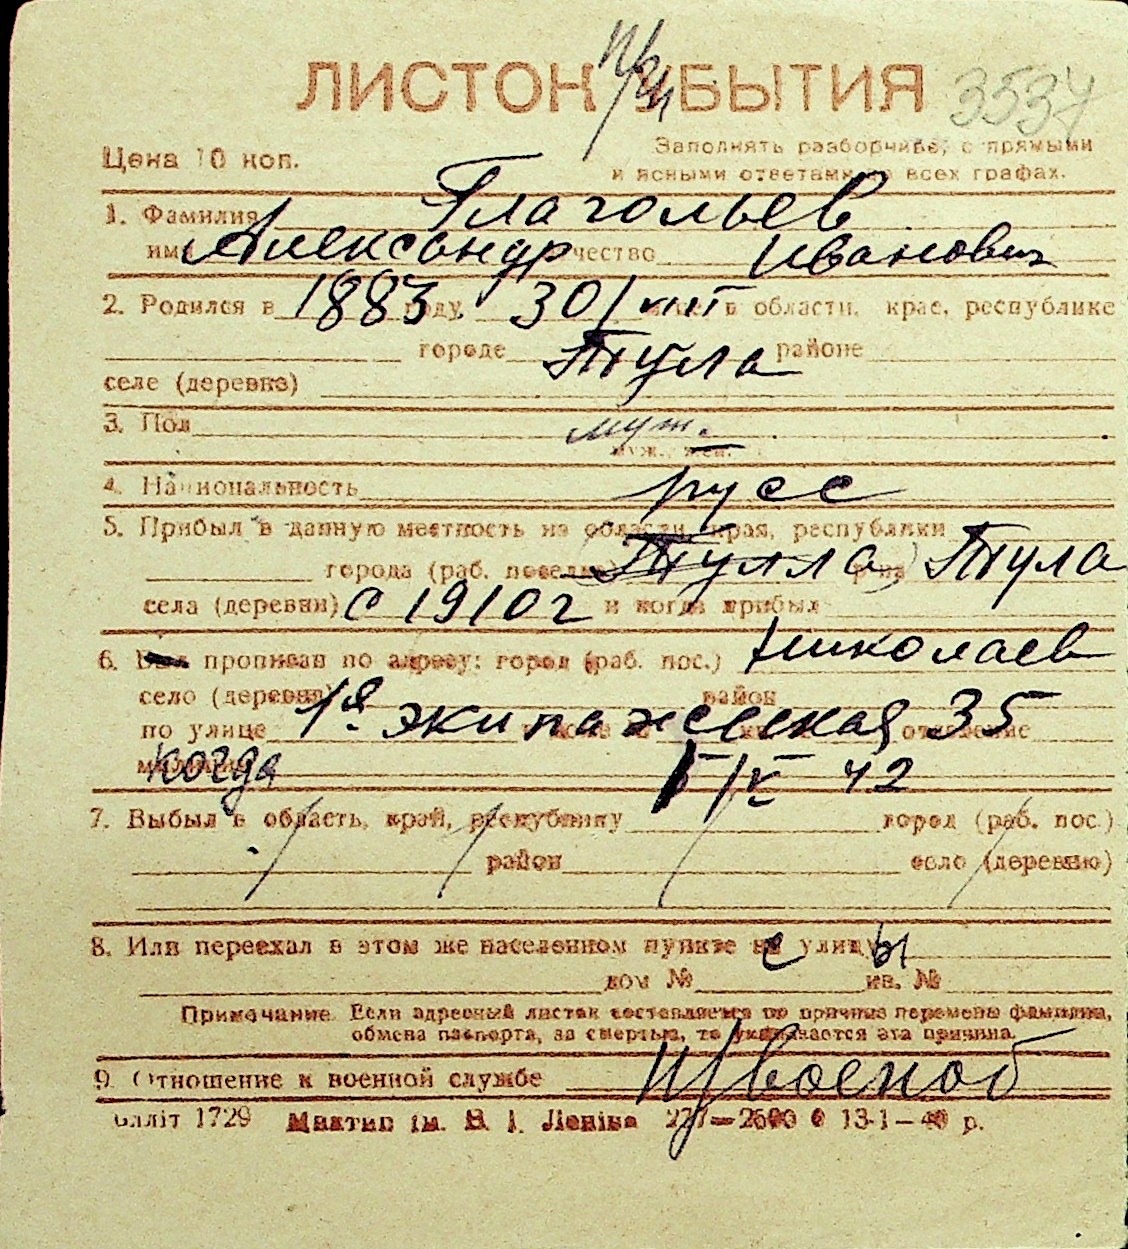 ЛИСТОК УБЫТИЯ 3537
Цена 10 коп. Заполнять разборчиво, с прямыми
и ясными ответами во всех графах.
1. Фамилия Глагольев
имя Александр отчество Иванович
2. Родился в 1883 году 30/VIII в области, крае, республике
городе Тула районе
селе (деревне)
3. Пол муж.
муж., жен.
4. Национальность русс
5. Прибыл в данную местность из области, края, республики
города (раб. поселка) Тулла Тула
села (деревни) с 1910 г и когда прибыл
6. прописан по адресу: город (раб. пос.) Николаев
село (деревня) район
по улице 1я экипажеская 35 отделение
когда 42
7. Выбыл в область, край, республику город (раб. пос.)
район село (деревню)
8. Или переехал в этом же населенном пункте с улицы
дом № кв. №
Примечание. Если адресный листок составляется по причине перемены фамилии,
обмена паспорта, за смертью, то указывается эта причина.
9. Отношение к военной службе н/военоб
Облліт 1729 ім. В. І. Леніна 13-1-40 р.